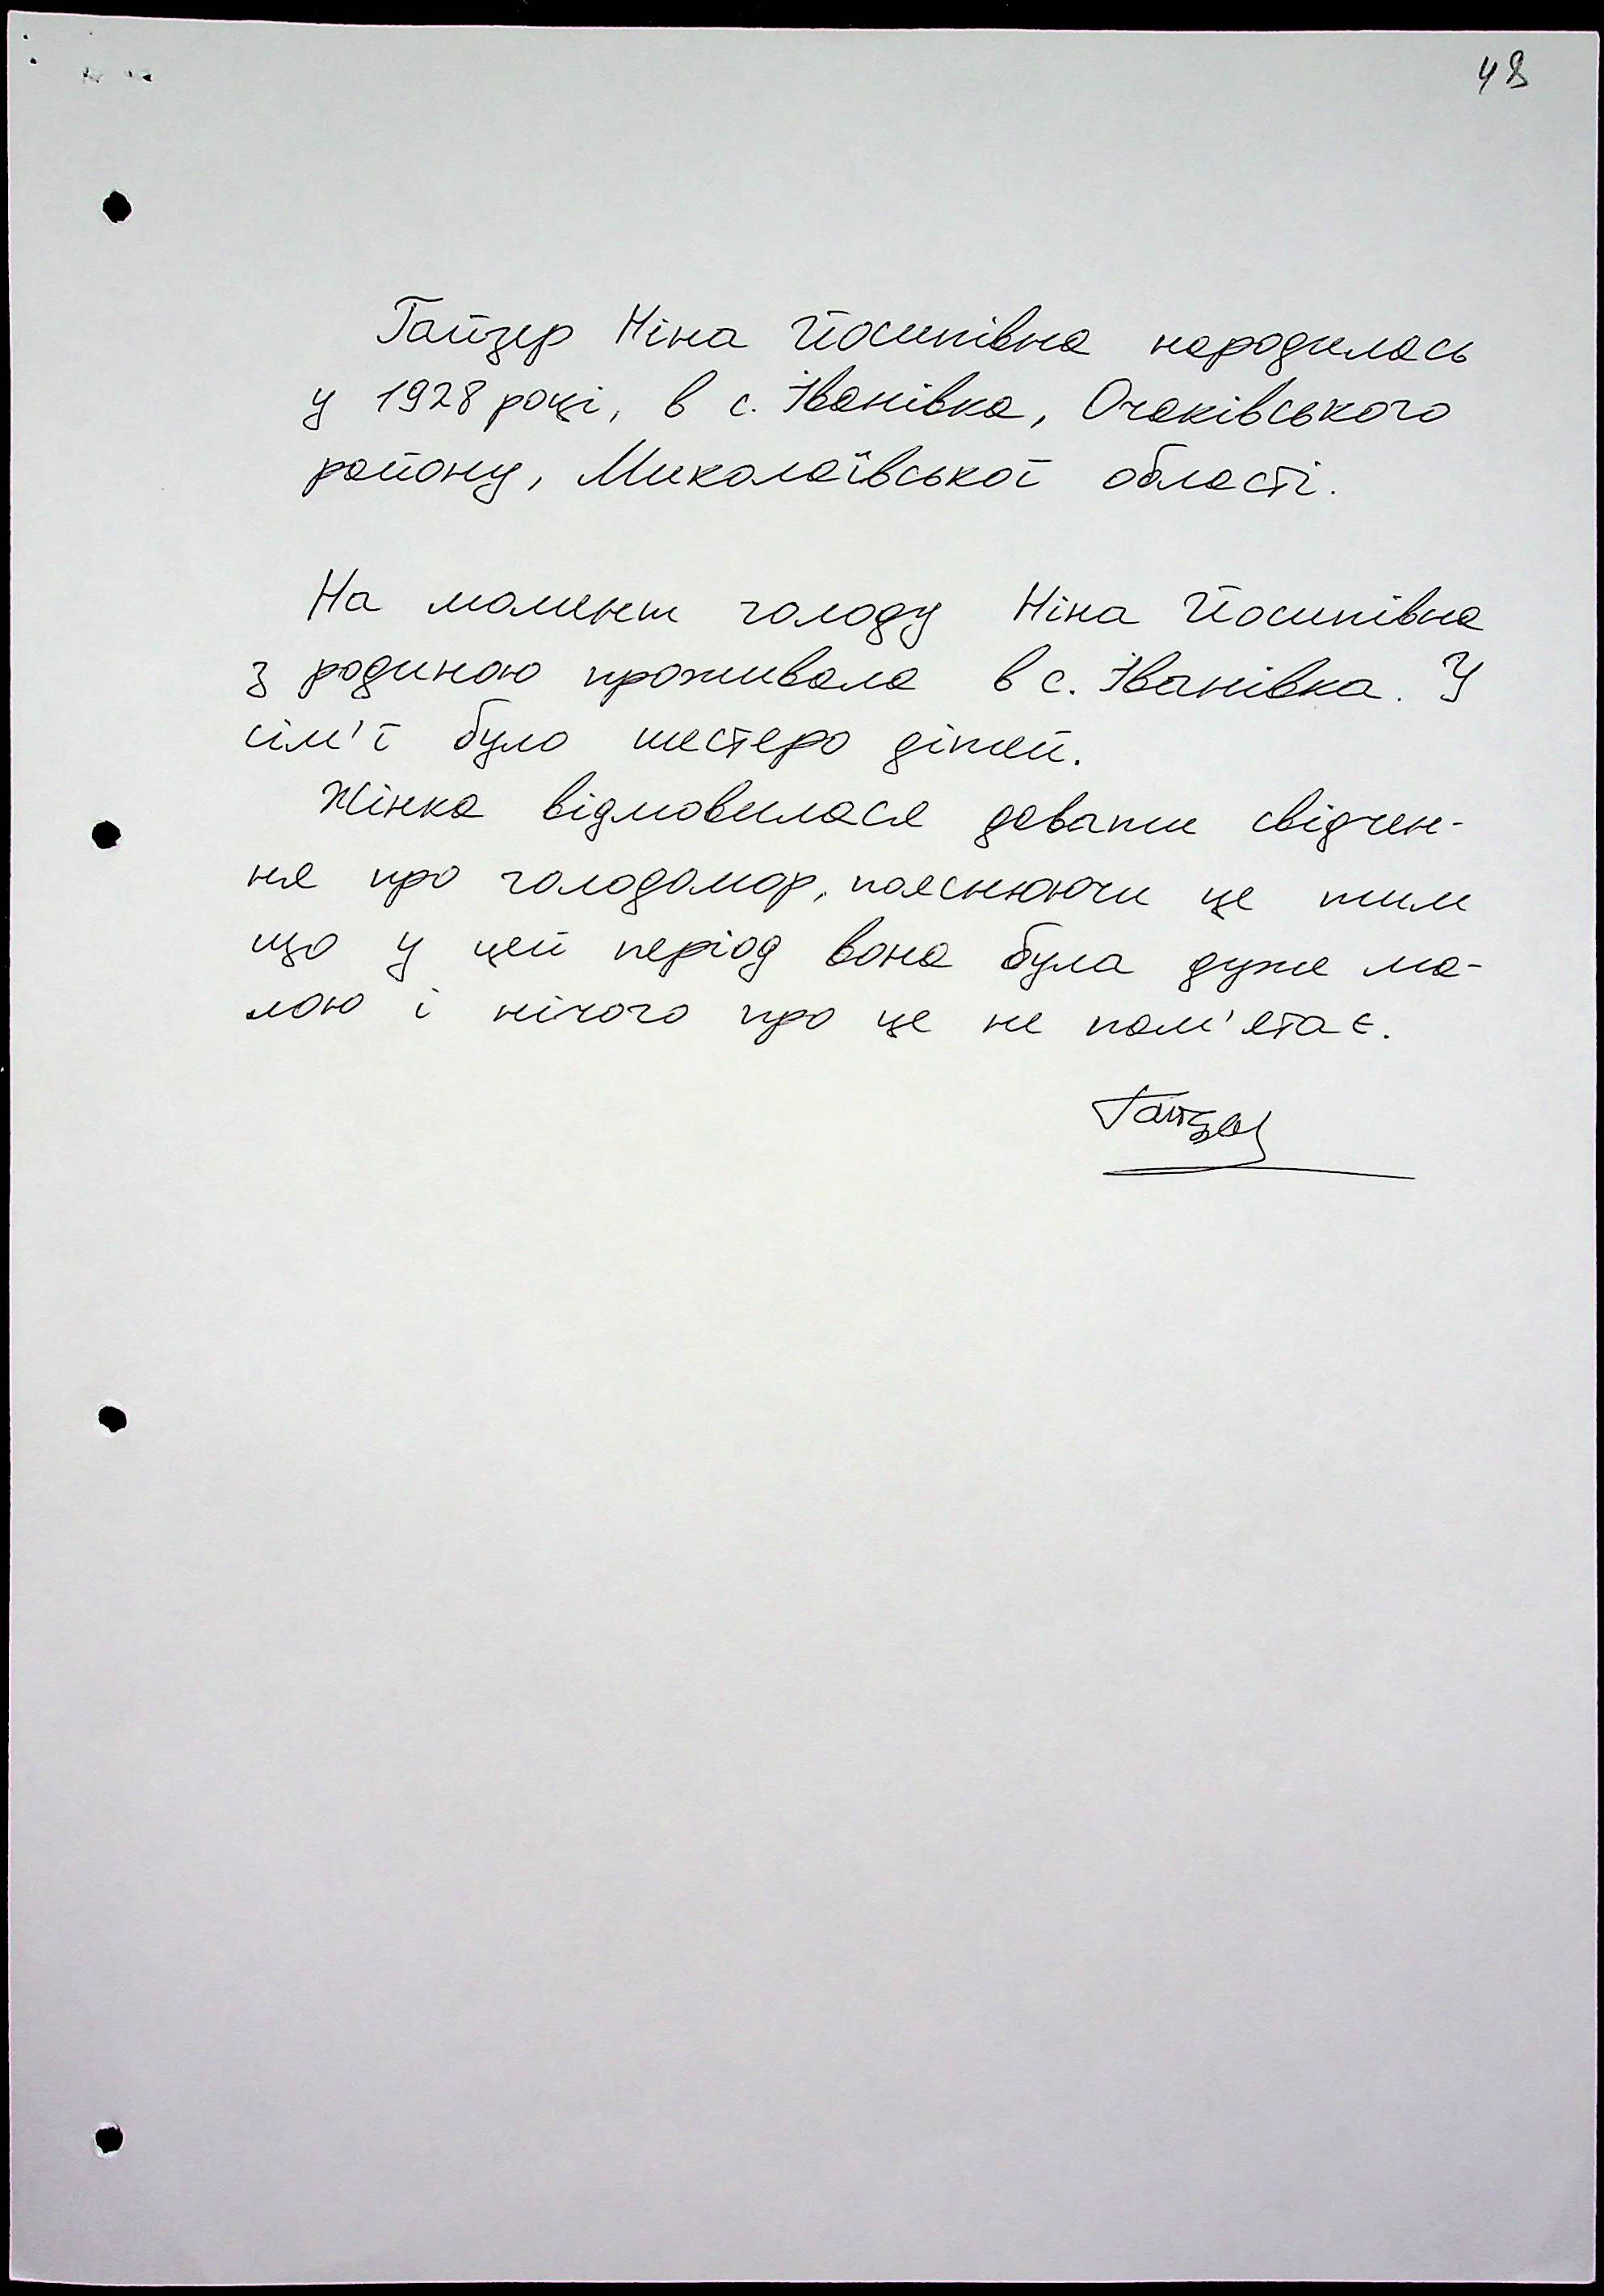 48
Гайзер Ніна Йосипівна народилась
у 1928 році, в с. Іванівка, Очаківського
району, Миколаївської області.
На момент голоду Ніна Йосипівна
з родиною проживала в с. Іванівка. У
сім'ї було шестеро дітей.
Жінка відмовилася давати свідчен-
ня про голодомор, пояснюючи це тим
що у цей період вона була дуже ма-
лою і нічого про це не пам'ятає.